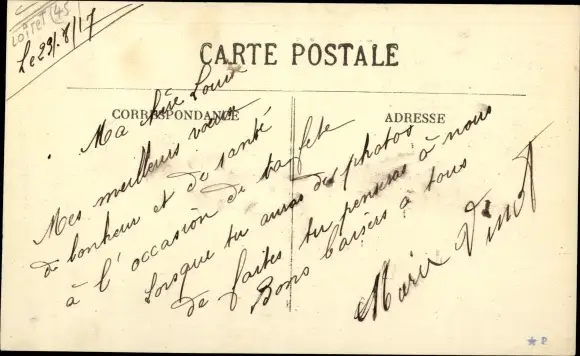 Loiret (45)
Le 23/8/17
CARTE POSTALE
CORRESPONDANCE
ADRESSE
Ma chère Louise
Mes meilleurs voeux
de bonheur et de santé
à l'occasion de ta fete
Lorsque tu auras des photos
de faites tu penseras à nous
Bons baisers à tous
Marie Vinot